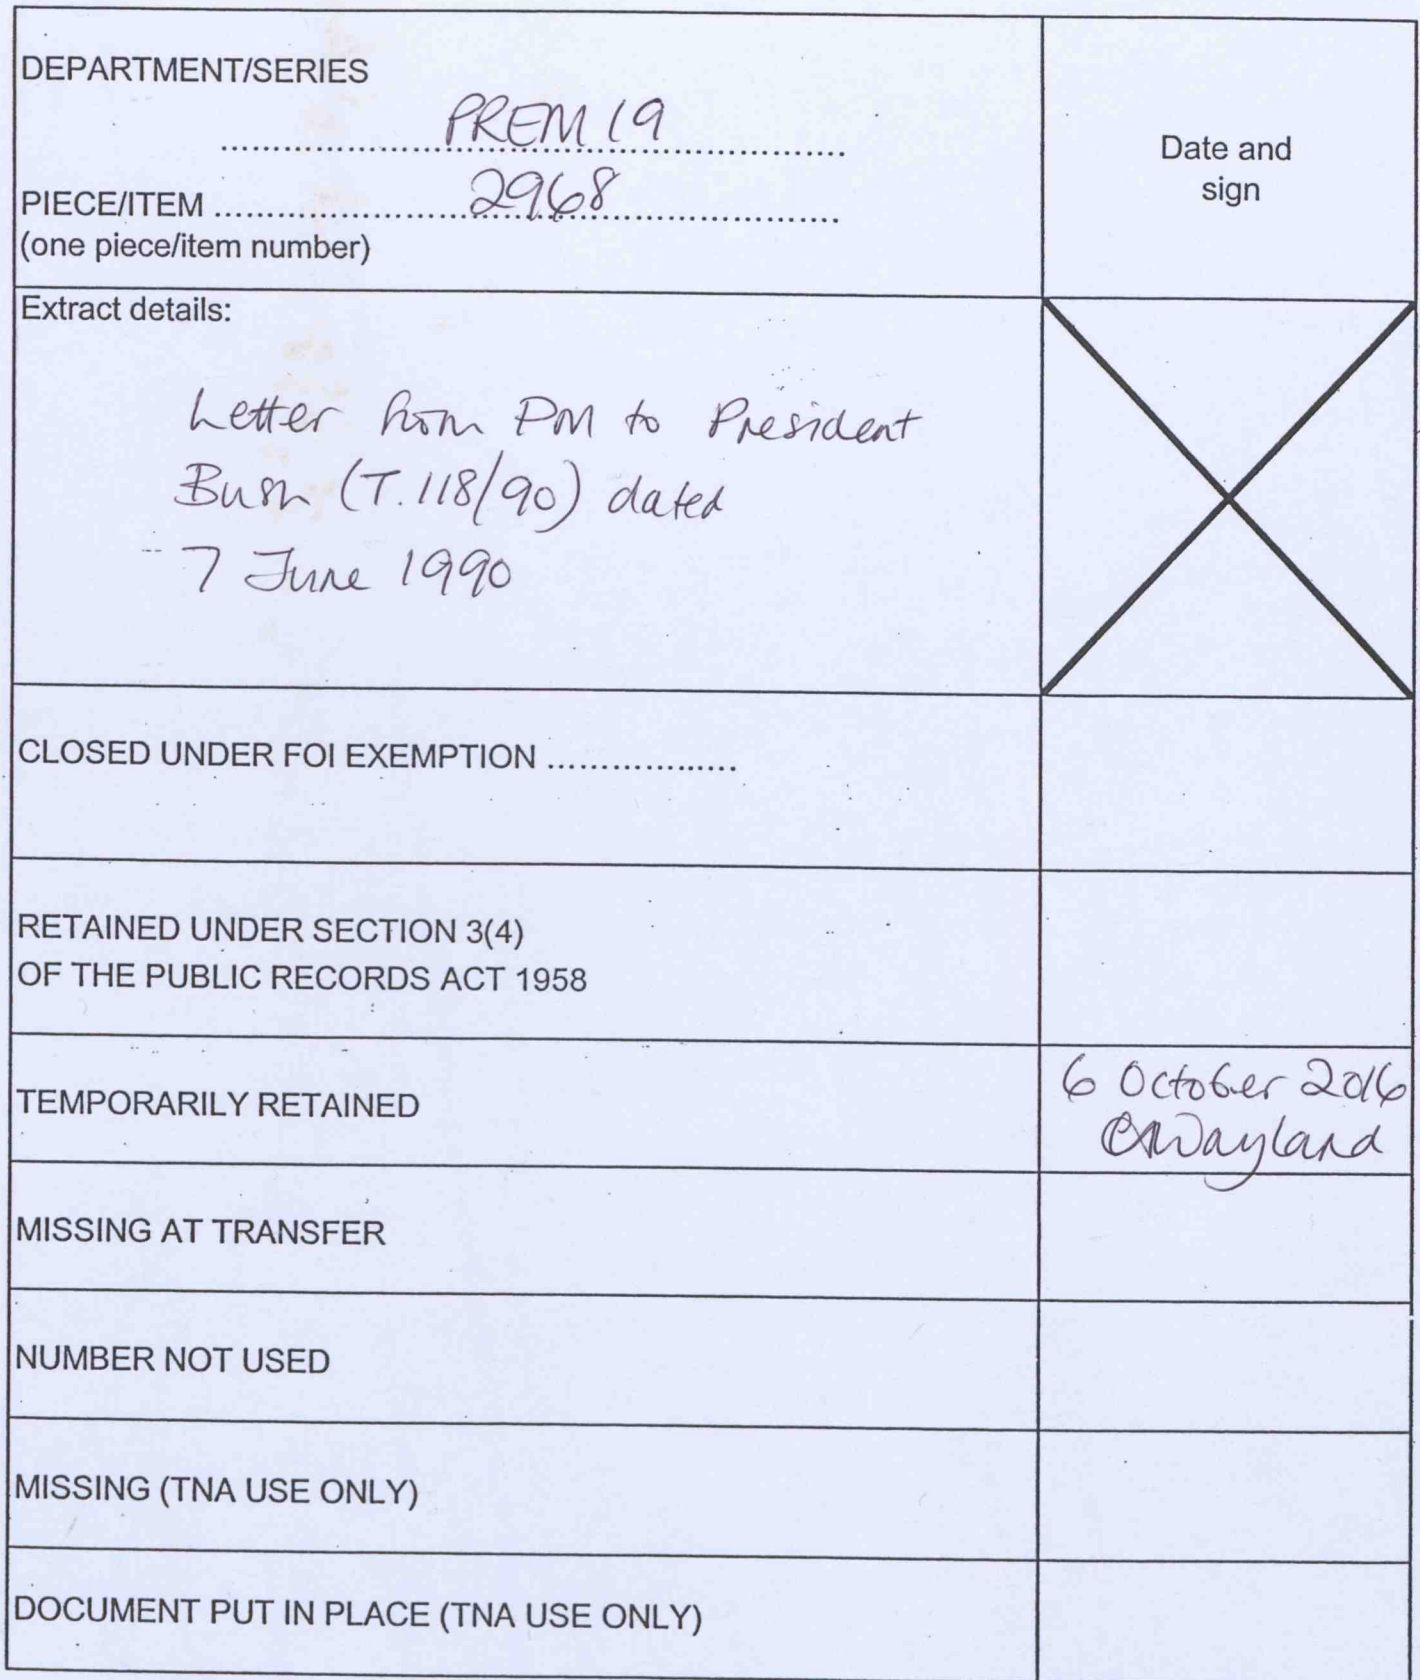 DEPARTMENT/SERIES
PREM 19
PIECE/ITEM 2968
(one piece/item number)
Date and
sign
Extract details:
Letter from PM to President
Bush (T.118/90) dated
7 June 1990
CLOSED UNDER FOI EXEMPTION ..................
RETAINED UNDER SECTION 3(4)
OF THE PUBLIC RECORDS ACT 1958
TEMPORARILY RETAINED
6 October 2016
Wayland
MISSING AT TRANSFER
NUMBER NOT USED
MISSING (TNA USE ONLY)
DOCUMENT PUT IN PLACE (TNA USE ONLY)